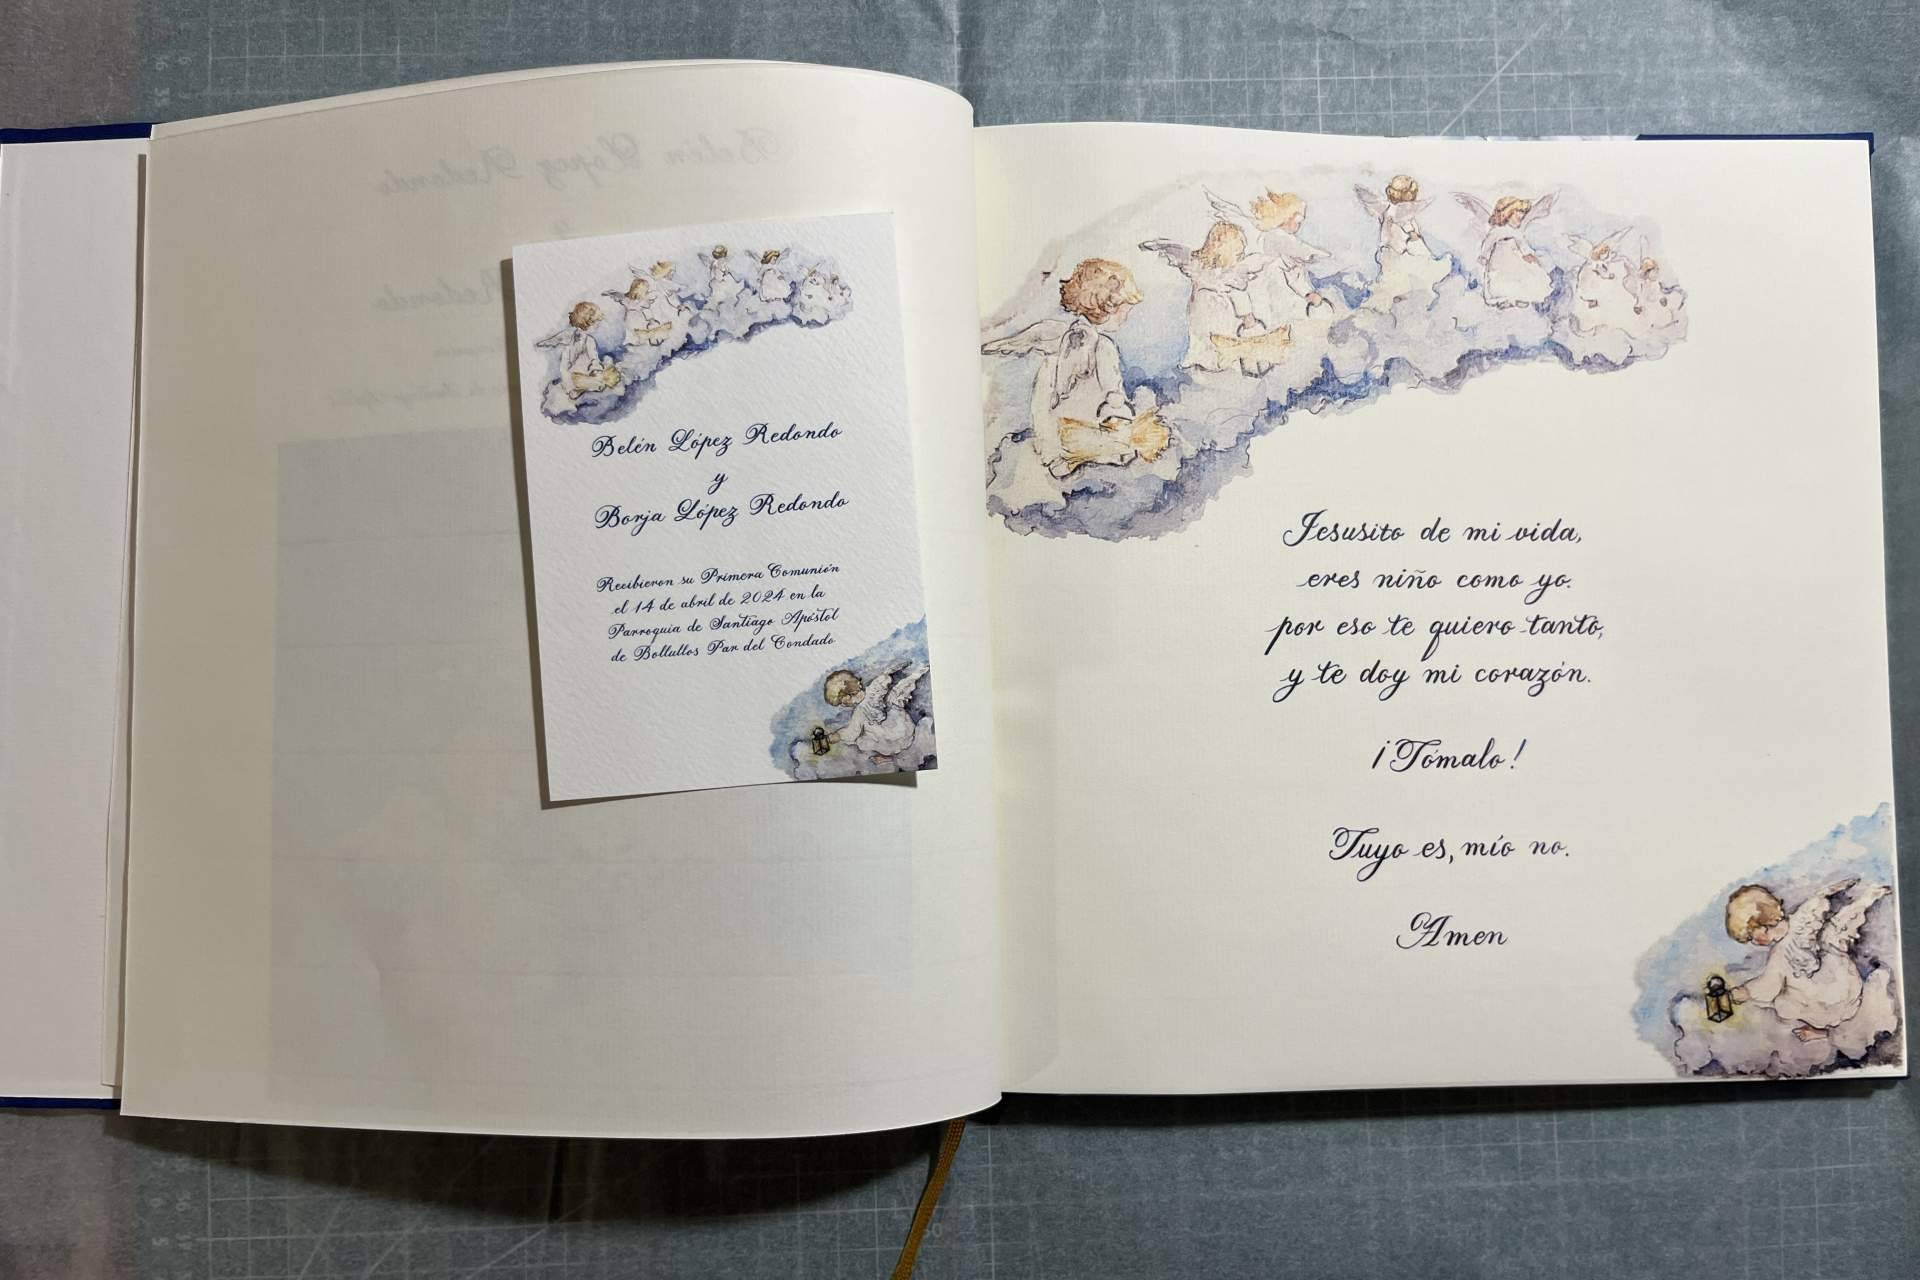 Belén López Redondo
y
Borja López Redondo
Recibieron su Primera Comunión
el 14 de abril de 2024 en la
Parroquia de Santiago Apóstol
de Bollullos Par del Condado
Jesusito de mi vida,
eres niño como yo.
por eso te quiero tanto,
y te doy mi corazón.
¡Tómalo!
Tuyo es, mío no.
Amen